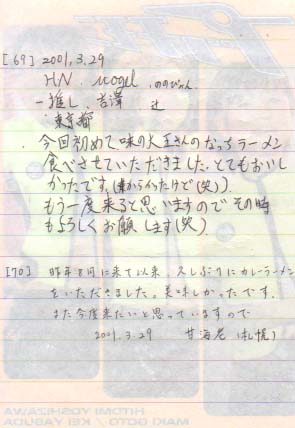 [69] 2001.3.29
HN. mogel, ののぴょん
一推し. 吉澤 辻
東京都
今回初めて味の大王さんのなっちラーメン
食べさせていただきました. とてもおいし
かったです. (辛かったけど(笑))
もう一度来ると思いますので その時
もよろしくお願します(笑)
[70] 昨年8月に来て以来、久しぶりにカレーラーメン
をいただきました。美味しかったです.
また今度来たいと思っていますので
2001.3.29 甘海老 (札幌)
HITOMI YOSHIZAWA
MAKI GOTO / KEI YASUDA